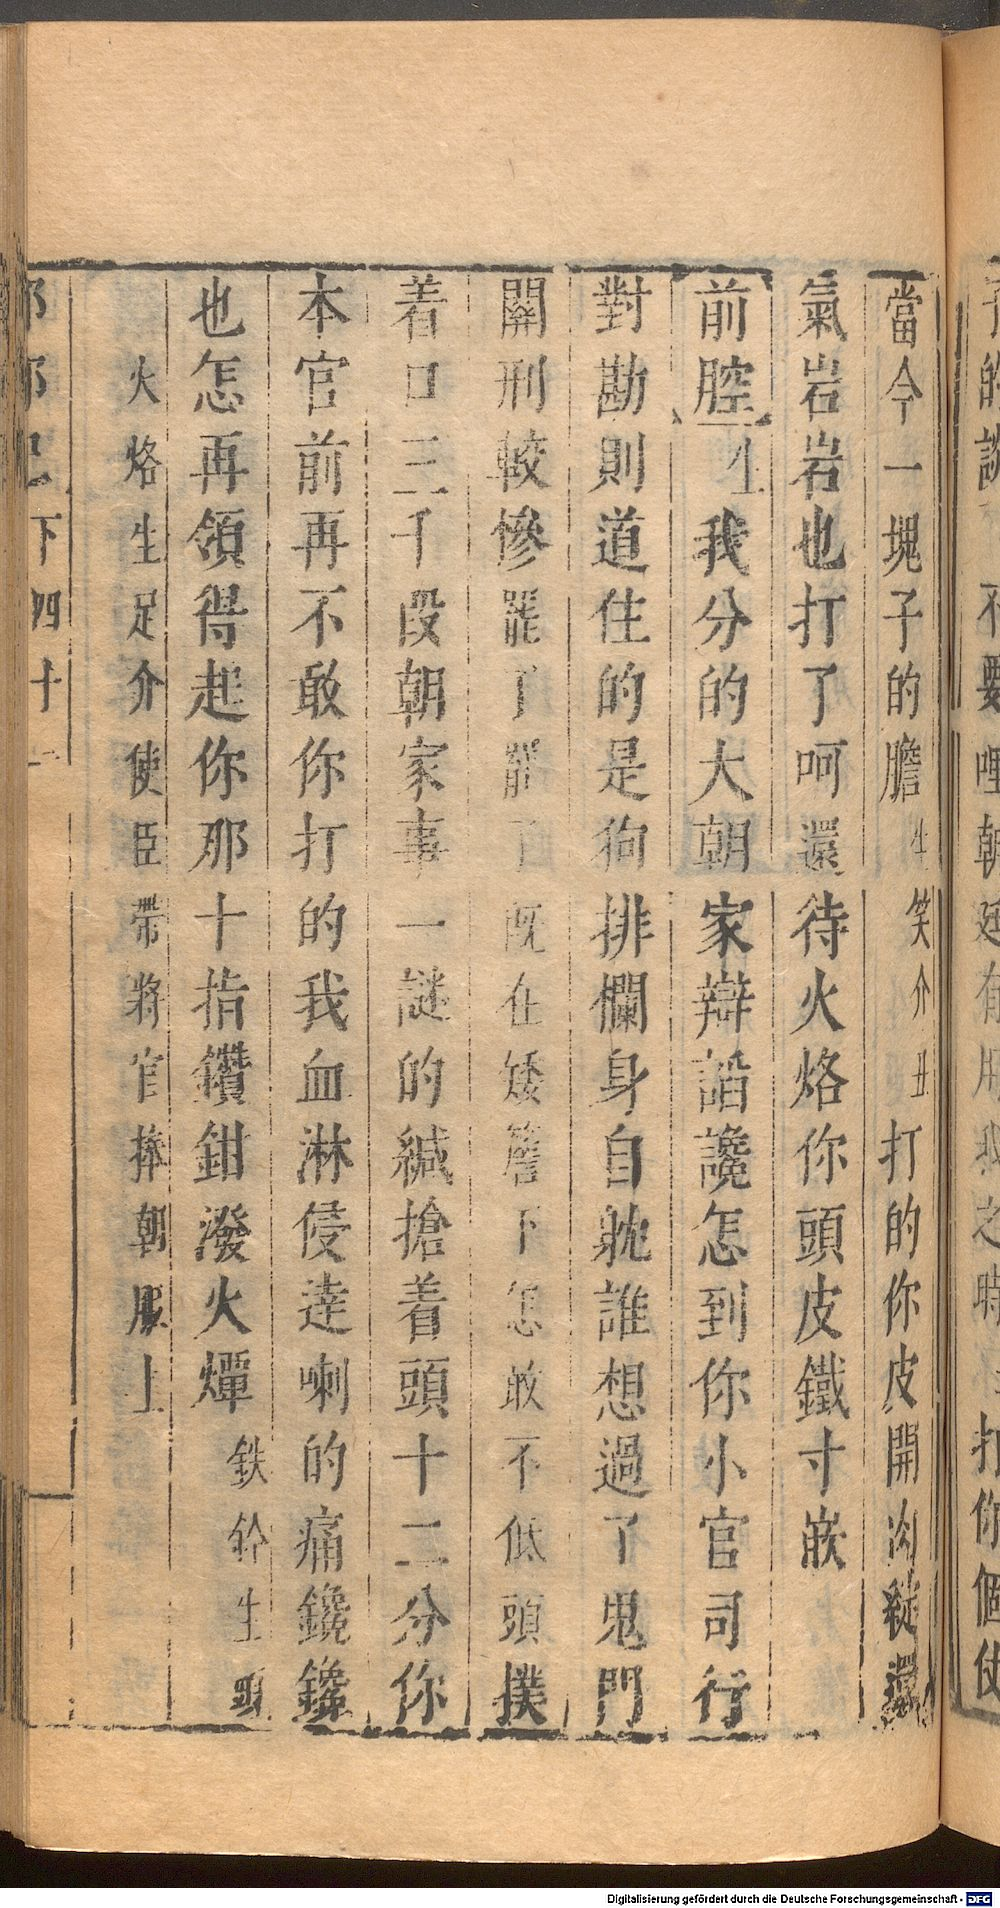 子的說 不要哩朝廷有用我之時 打你個仗
當今一塊子的膽生笑介丑打的你皮開肉綻還
氣岩岩也打了呵還待火烙你頭皮鐵寸嵌
前腔生我分的大朝家辯諂讒怎到你小官司行
對勘則道住的是狗排欄身自躭誰想過了鬼門
關刑較慘罷了罷了既在矮簷下怎敢不低頭撲
着口三千段朝家事一謎的緘搶着頭十二分你
本官前再不敢你打的我血淋侵達喇的痛鑱鑱
也怎再領得起你那十指鑽鉗潑火燀鉄鈴生頭
火烙生足介使臣帶將官捧朝服上
下四十二
Digitalisierung gefördert durch die Deutsche Forschungsgemeinschaft - DFG